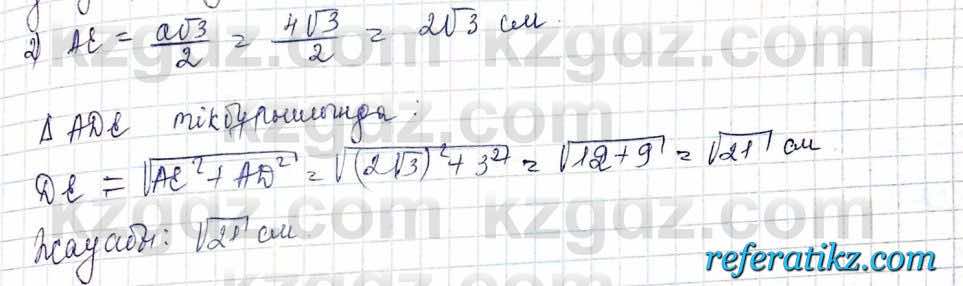 2) AE = a√3/2 = 4√3/2 = 2√3 см.
Δ ADE тікбұрышында:
DE = √(AE² + AD²) = √((2√3)² + 3²) = √(12+9) = √21 см
Жауабы: √21 см
kzgdz.com kzgdz.com
kzgdz.com kzgdz.com
referatikz.com